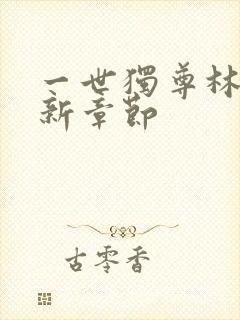 一世獨尊林
新章節
古零香